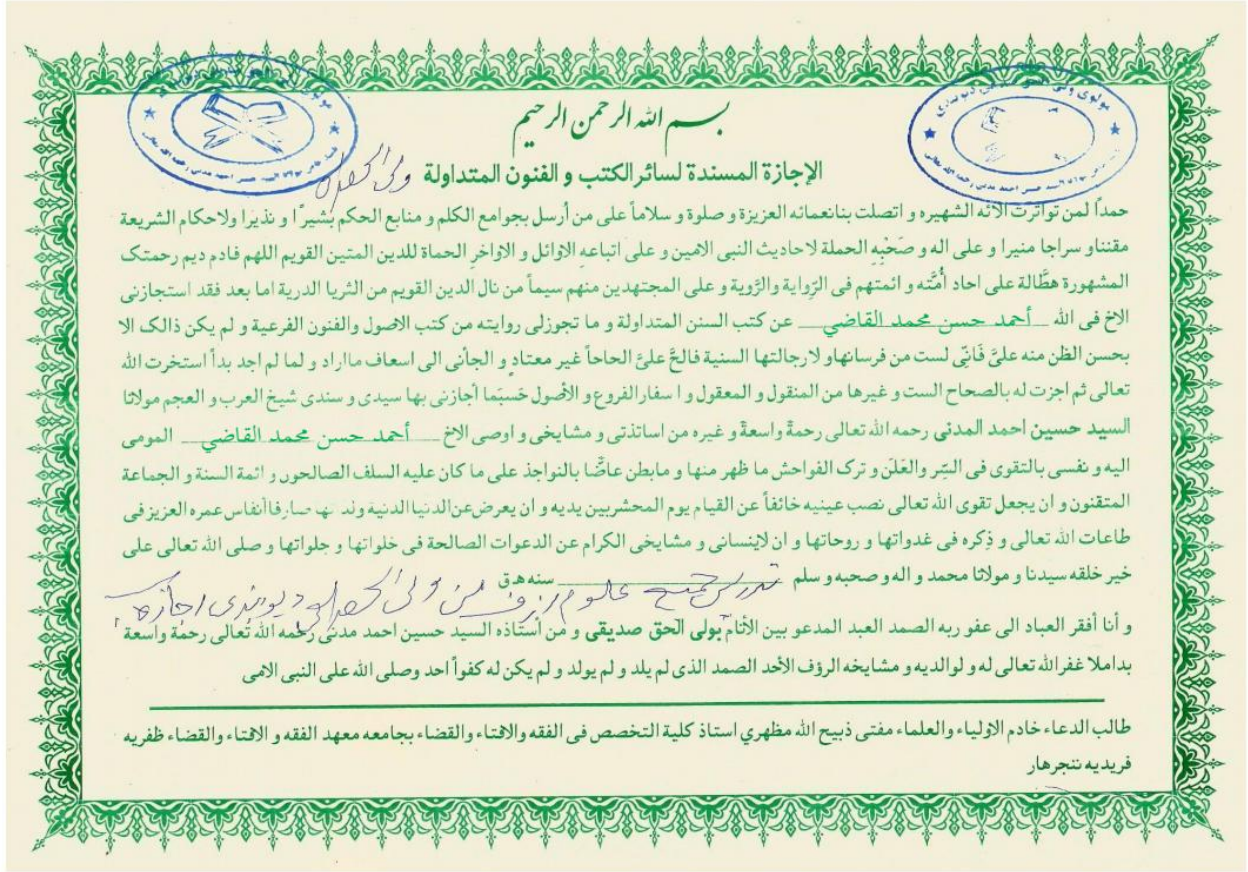 بسم الله الرحمن الرحيم
الإجازة المسندة لسائر الكتب و الفنون المتداولة
حمداً لمن تواترت الائه الشهيره و اتصلت بنانعمائه العزيزة و صلوة و سلاماً على من أرسل بجوامع الكلم و منابع الحكم بشيراً و نذيرا ولاحكام الشريعة
مقنناو سراجا منيرا و على اله و صحبه الحملة لاحاديث النبى الامين و على اتباعه الاوائل و الاواخر الحماة للدين المتين القويم اللهم فادم ديم رحمتك
المشهورة هطَّالة على احاد أمَّته و ائمتهم فى الرِواية والرَوية و على المجتهدين منهم سيماً من نال الدين القويم من الثريا الدرية اما بعد فقد استجازنى
الاخ فى الله أحمد حسن محمد القاضي عن كتب السنن المتداولة و ما تجوزلى روايته من كتب الاصول والفنون الفرعية و لم يكن ذالك الا
بحسن الظن منه علىَّ فَانِّى لست من فرسانهاو لارجالتها السنية فالحَّ علىَّ الحاحاً غير معتادٍ و الجأنى الى اسعاف مااراد و لما لم اجد بداً استخرت الله
تعالى ثم اجزت له بالصحاح الست و غيرها من المنقول و المعقول و اسفار الفروع و الأصول حَسبَما أجازنى بها سيدى و سندى شيخ العرب و العجم مولانا
السيد حسين احمد المدنى رحمه الله تعالى رحمةً واسعةً و غيره من اساتذتى و مشايخى و اوصى الاخ أحمد حسن محمد القاضي المومى
اليه و نفسى بالتقوى فى السِّر والعَلَن و ترك الفواحش ما ظهر منها و مابطن عاضًّا بالنواجذ على ما كان عليه السلف الصالحون و ائمة السنة و الجماعة
المتقنون و ان يجعل تقوى الله تعالى نصب عينيه خائفاً عن القيام يوم المحشربين يديه و ان يعرض عن الدنيا الدنية صارفاأنفاس عمره العزيز فى
طاعات الله تعالى و ذِكره فى غدواتها و روحاتها و ان لاينسانى و مشايخى الكرام عن الدعوات الصالحة فى خلواتها و جلواتها و صلى الله تعالى على
خير خلقه سيدنا و مولانا محمد و اله و صحبه و سلم سنه هـق
و أنا أفقر العباد الى عفو ربه الصمد العبد المدعو بين الأنام بولى الحق صديقى و من أستاذه السيد حسين احمد مدنى رحمه الله تعالى رحمة واسعة
بداملا غفرالله تعالى له و لوالديه و مشايخه الرؤف الأحد الصمد الذى لم يلد و لم يولد و لم يكن له كفواً احد وصلى الله على النبى الامى
طالب الدعاء خادم الاولياء والعلماء مفتى ذبيح الله مظهري استاذ كلية التخصص فى الفقه والافتاء والقضاء بجامعه معهد الفقه و الافتاء والقضاء ظفريه
فريديه ننجرهار